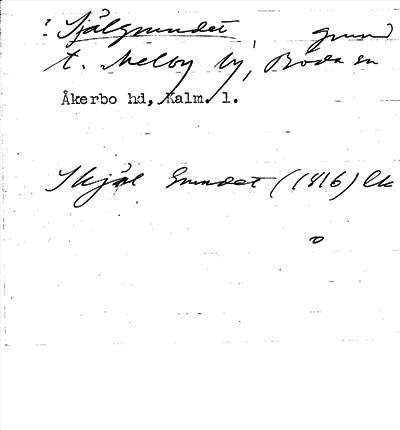 ? Själgrundet, grund
t. Melby by, Böda sn
Åkerbo hd, Kalm. l.
Skjäl Grundet (1816) Ek